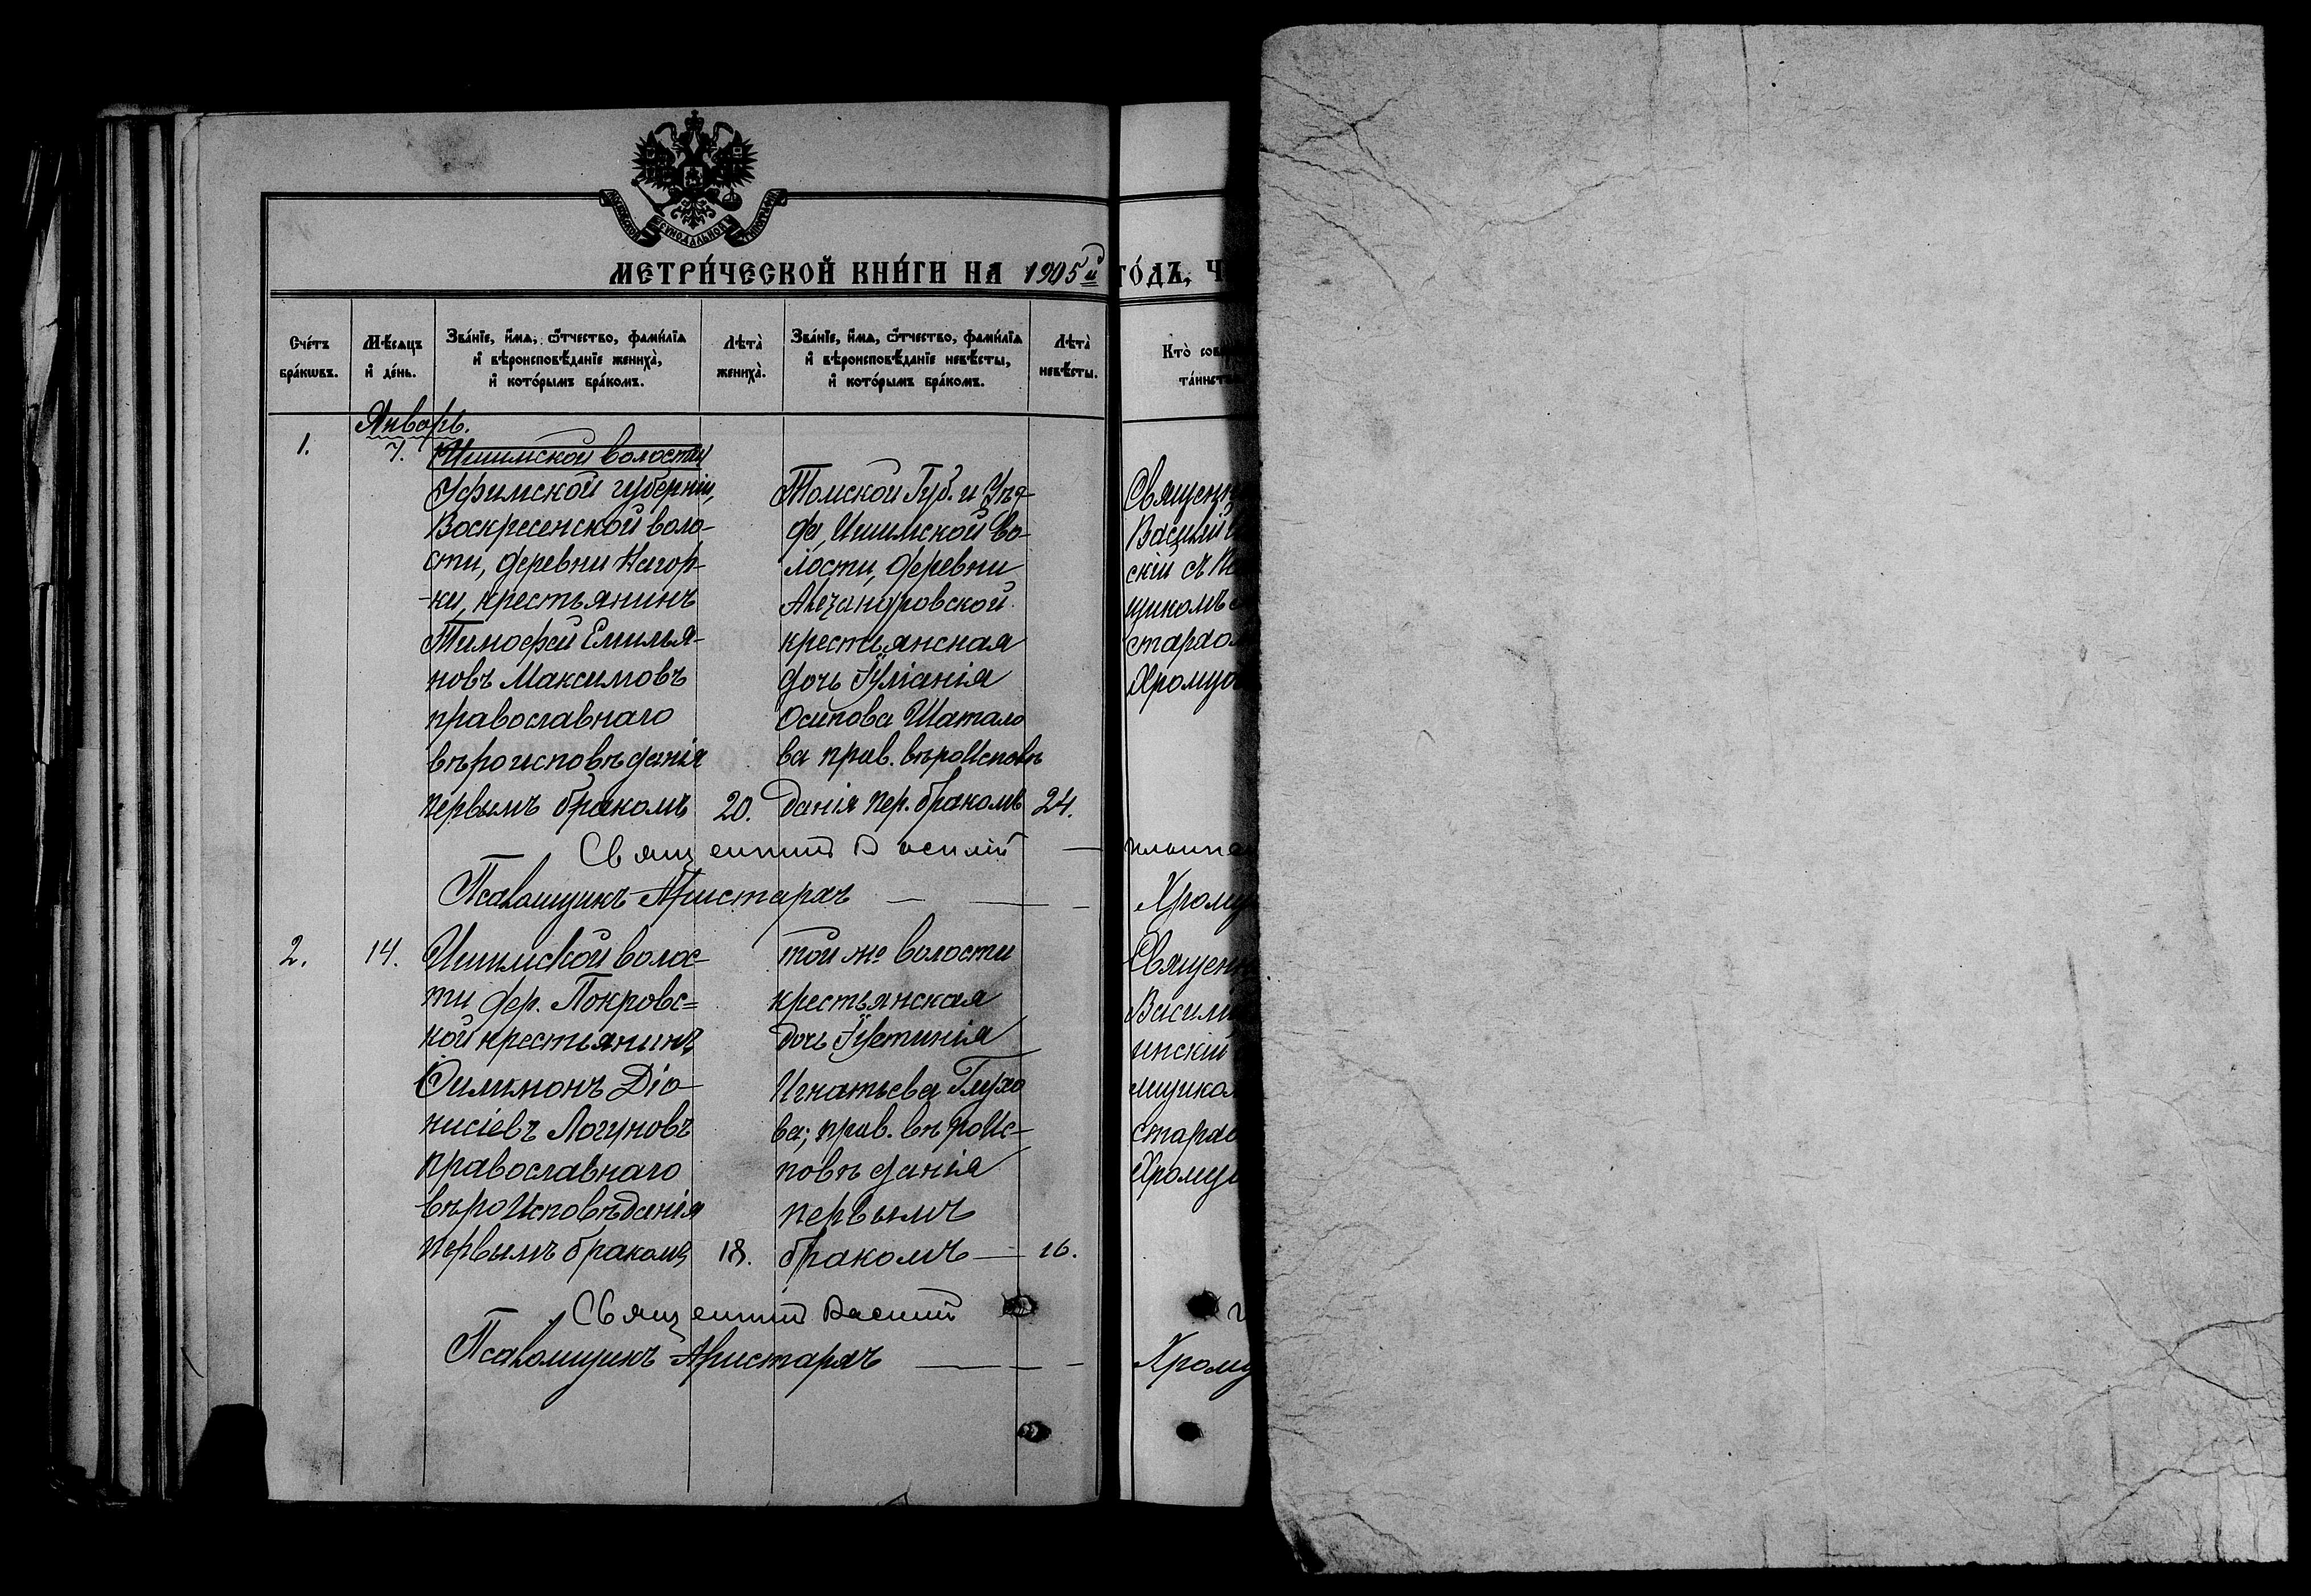 СѴНОДАЛЬНОЙ
МЕТРИ́ЧЕСКОЙ КНИ́ГИ НА 1905й го́дъ, Ч
Сче́тъ бра́кѡвъ.
Мѣ́сяцъ и҆ де́нь.
Зва́нїе, и҆́мѧ, ѻ҆́тчество, фами́лїѧ
и҆ вѣроисповѣ́данїе жениха̀,
и҆ кото́рымъ бра́комъ.
Лѣта̀ жениха̀.
Зва́нїе, и҆́мѧ, ѻ҆́тчество, фами́лїѧ
и҆ вѣроисповѣ́данїе невѣ́сты,
и҆ кото́рымъ бра́комъ.
Лѣта̀ невѣ́сты.
Кто̀ сов
та́инст
Январь.
1.
7.
Ишимской волости
Уфимской губерніи,
Воскресенской воло-
сти, деревни Нагор-
ки, крестьянинъ
Тимофей Емилья-
новъ Максимовъ
православнаго
вѣроисповѣданія
первымъ бракомъ
20.
Томской Губ. и Уѣз-
да, Ишимской во-
лости, деревни
Александровской
крестьянская
дочь Іуліанія
Осипова Шатало
ва прав. вѣроисповѣ
данія пер. бракомъ
24.
Священн
Василій
скій съ Пса
щикомъ
стархом
Хромцов
Священникъ Василій — Ильин
Псаломщикъ Аристархъ — — — Хромц
2.
14.
Ишимской волос-
ти дер. Покровс=
кой крестьянинъ
Филимонъ Діо-
нисіевъ Логуновъ
православнаго
вѣроисповѣданія
первымъ бракомъ
18.
той же волости
крестьянская
дочь Іустинія
Игнатьева Глухо
ва; прав. вѣроис-
повѣданія
первымъ
бракомъ —
16.
Священн
Васили
инскій
мщиком
стархо
Хромц
Священникъ Василій
Псаломщикъ Аристархъ — — — Хромц